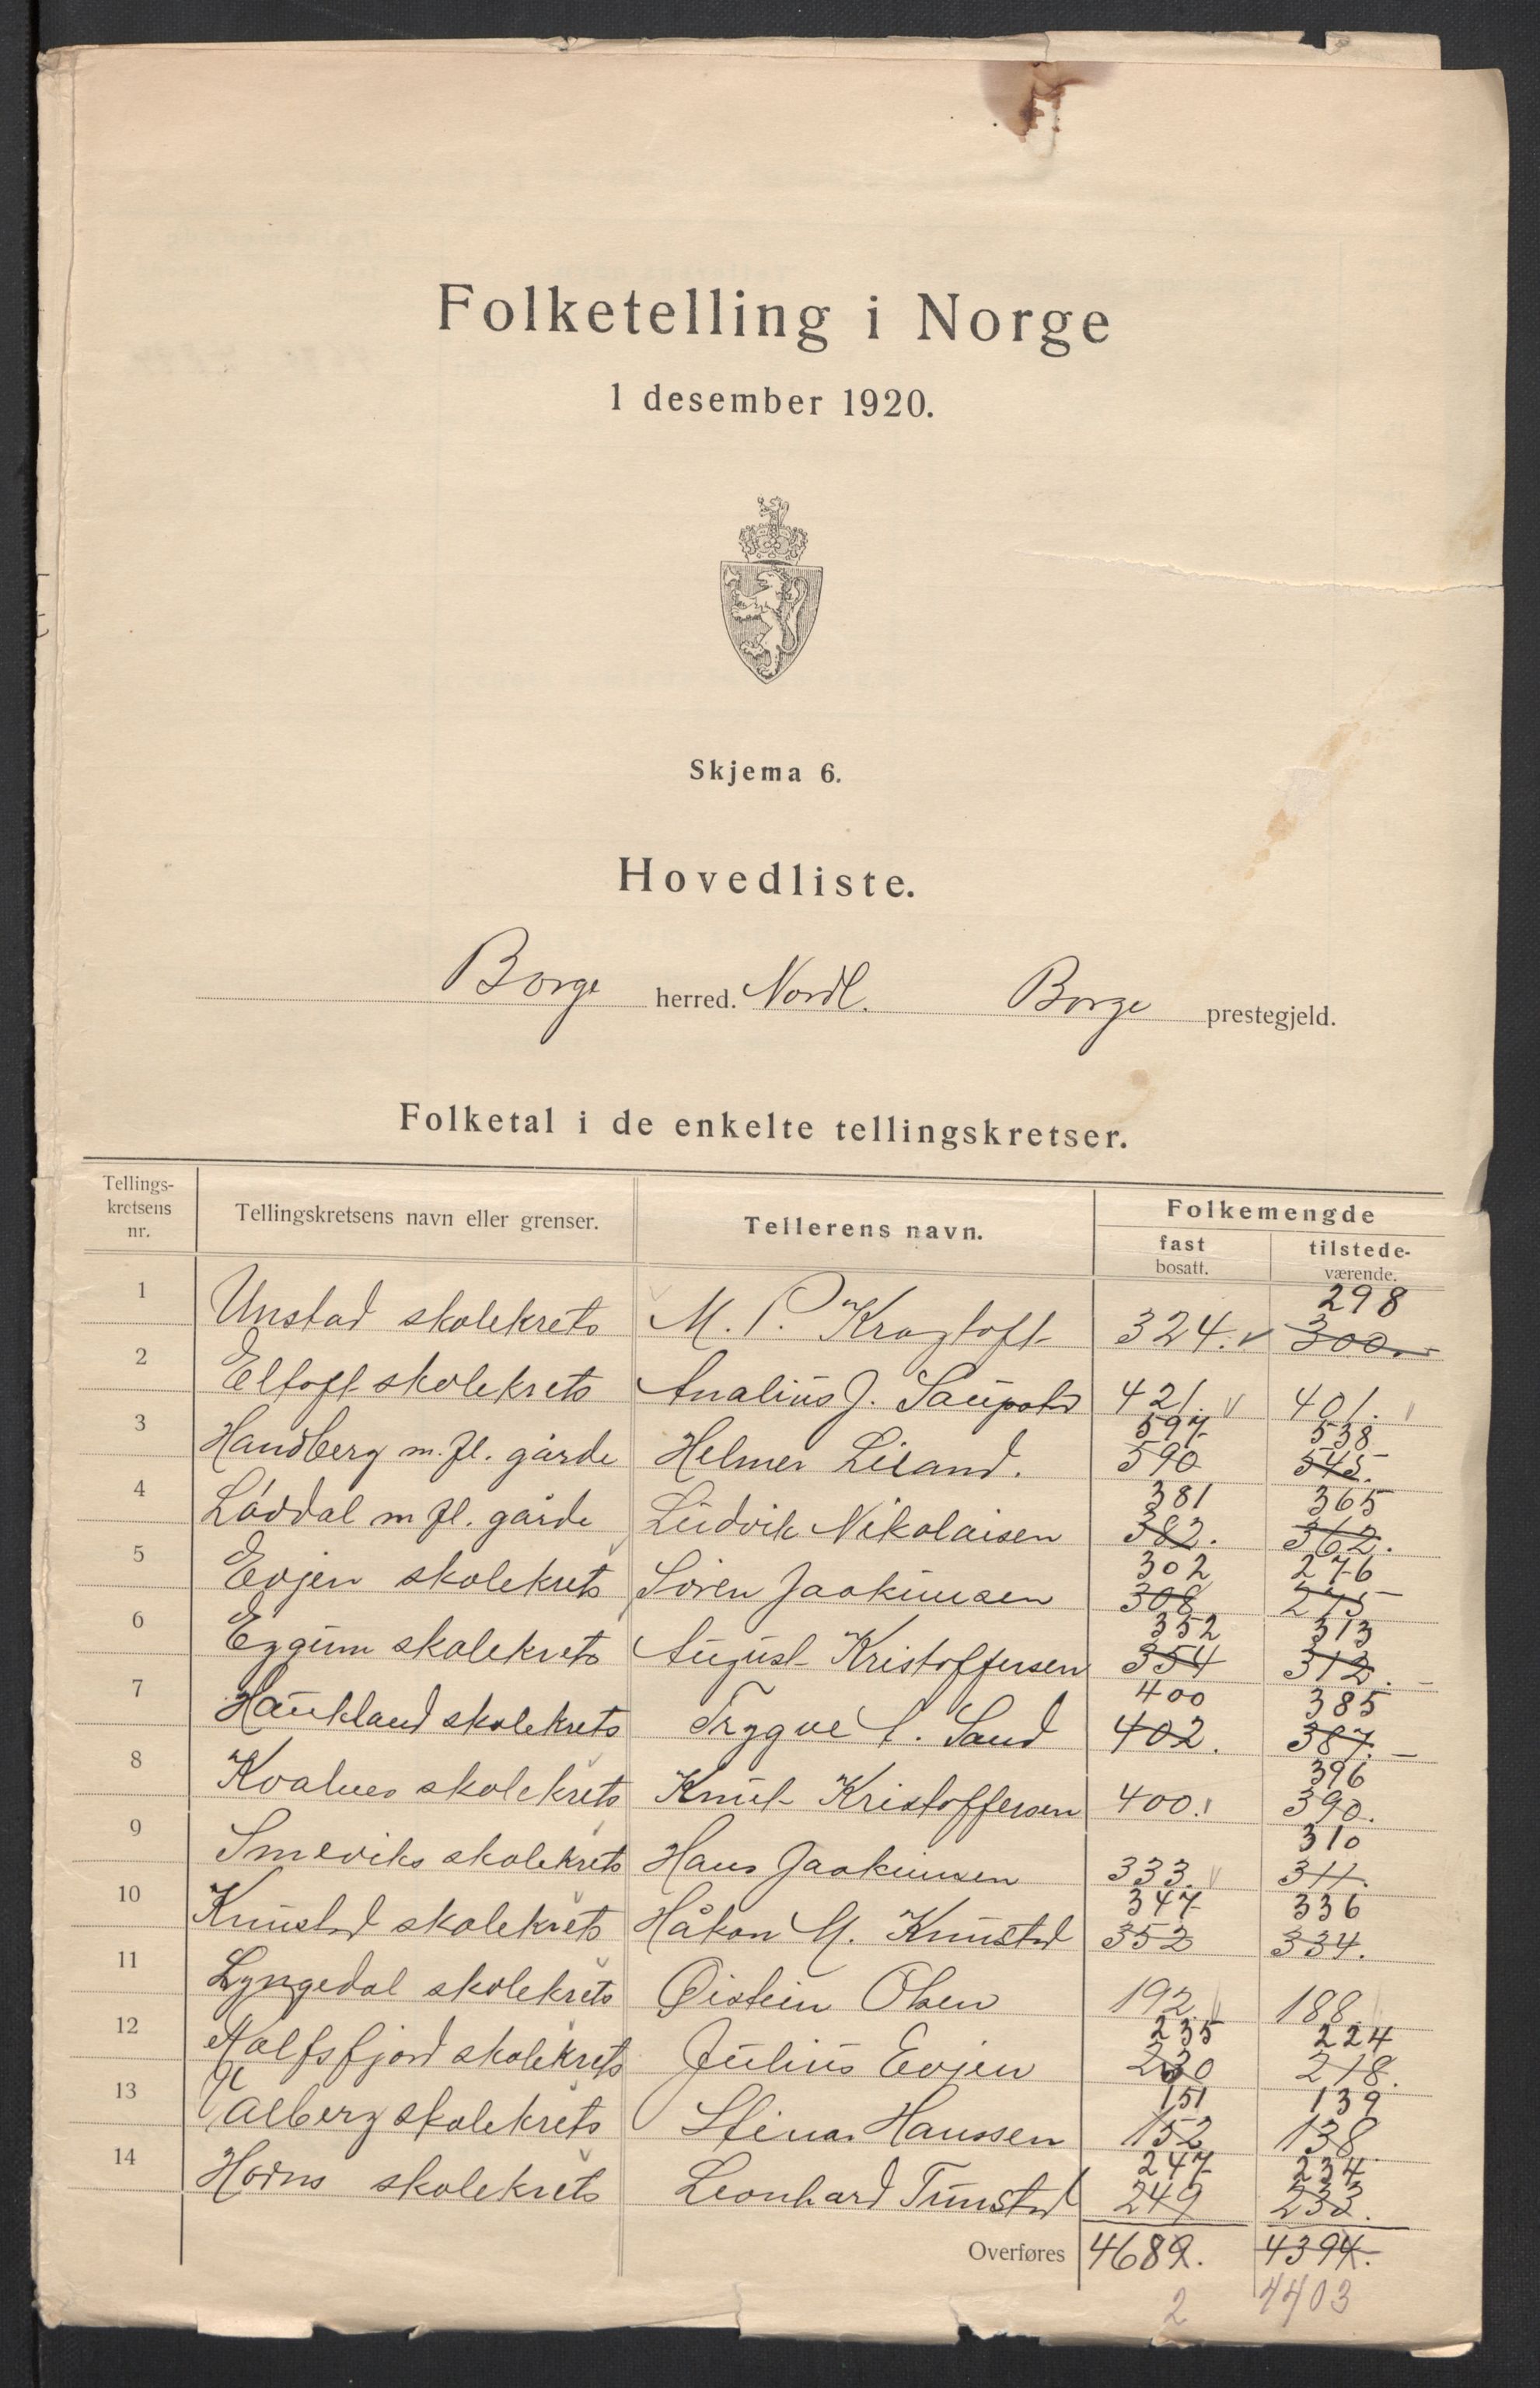 Folketelling i Norge
1 desember 1920.
Skjema 6.
Hovedliste.
Borge herred. Nordl. Borge prestegjeld.
Folketal i de enkelte tellingskretser.
Tellings-
kretsens
nr.
Tellingskretsens navn eller grenser.
Tellerens navn.
Folkemengde
fast
bosatt.
tilstede-
værende.
298
1 Unstad skolekrets M. P. Kragtoft 324. 300.
2 Eltoft skolekrets Analius J. Saupstd 421. 401.
597 538
3 Handberg m. fl. gårde Helmer Liland. 590 545.
381 365
4 Løddal m fl. gårde Ludvik Nikolaisen 382. 362.
302 276
5 Evjen skolekrets Sören Jaakimsen 308 275
352 313
6 Eggum skolekrets August Kristoffersen 354 312.
400 385
7 Haukland skolekrets Trygve Sand 402. 387.
396
8 Kvalnes skolekrets Knut Kristoffersen 400. 390.
310
9 Smeviks skolekrets Hans Jaakimsen 333. 311.
347 336
10 Knutstd skolekrets Håkon M. Knutstd 352 334.
11 Lyngedal skolekrets Øistein Olsen 192. 188
235 224
12 Kalfsfjord skolekrets Julius Evjen 230 218.
151 139
13 Valberg skolekrets Steinar Hanssen 152 138
247 234
14 Horns skolekrets Leonhard Tunstd 249 233.
Overføres 4689. 4394.
2 4403